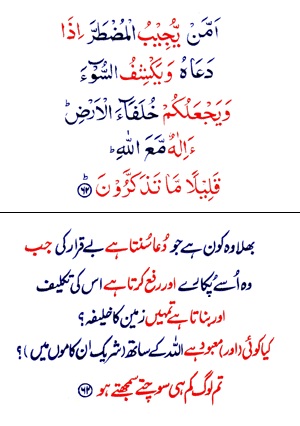 اَمَّنْ یُّجِیْبُ الْمُضْطَرَّ اِذَا
دَعَاهُ وَیَكْشِفُ السُّوْٓءَ
وَیَجْعَلُكُمْ خُلَفَآءَ الْاَرْضِ ؕ
ءَاِلٰهٌ مَّعَ اللّٰهِ ؕ
قَلِیْلًا مَّا تَذَكَّرُوْنَ ؕ ۶۲
بھلا وہ کون ہے جو دُعا سُنتا ہے بے قرار کی جب
وہ اُسے پُکارے اور رفع کرتا ہے اس کی تکلیف
اور بناتا ہے تمہیں زمین کا خلیفہ؟
کیا کوئی (اور) معبود ہے اللہ کے ساتھ (شریک اِن کاموں میں)؟
تم لوگ کم ہی سوچتے سمجھتے ہو ۶۲